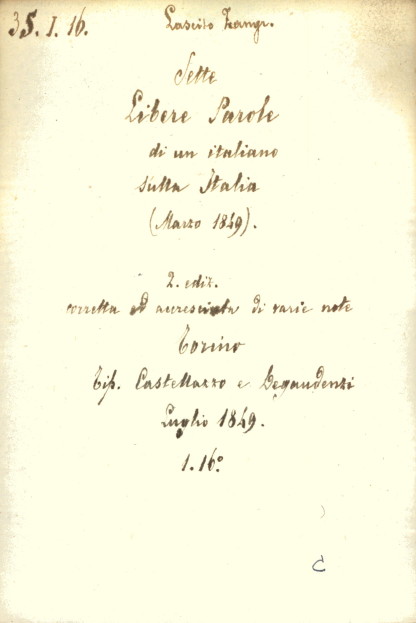 35. I. 16.
Lascito Zangr.
Sette
Libere Parole
di un italiano
sulla Italia
(Marzo 1849).
2. ediz.
corretta ed accresciuta di varie note
Torino
Tip. Castellazzo e Degaudenzi
Luglio 1849.
1. 16°
C